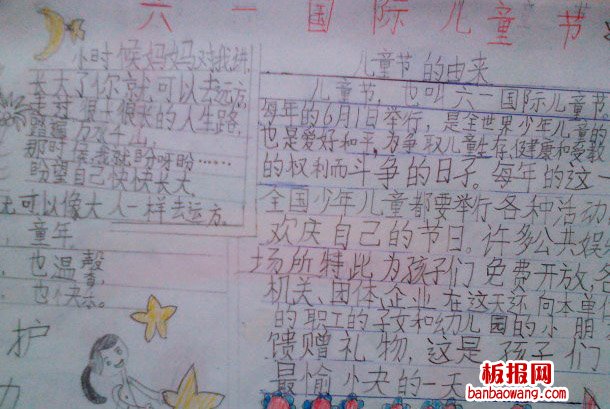 六一国际儿童节
小时候妈妈对我讲,
长大了你就可以去远方,
走过很长很长的人生路,
踏遍万水千山,
那时候我就盼呀盼……
盼望自己快快长大,
可以像大人一样去远方,
童年,
也温馨
也
护
力
儿童节的由来
儿童节,也叫六一国际儿童节
每年的6月1日举行,是全世界少年儿童的
也是爱好和平,为争取儿童生存、健康和受教
的权利而斗争的日子。每年的这一
全国少年儿童都要举行各种活动
欢庆自己的节日。许多公共娱
场所特此为孩子们免费开放,各
机关、团体、企业在这天还向本单位
的职工的子女和幼儿园的小朋
馈赠礼物,这是孩子们
最愉快的一天
板报网
banbaowang.com